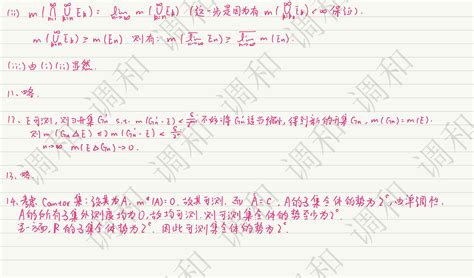 (ii) m(⋂_{n=1}^∞ ⋃_{k=n}^∞ E_k) = lim_{n→∞} m(⋃_{k=n}^∞ E_k) (这一步是因为有 m(⋃_{k=k_0}^∞ E_k)<∞ 保证).
m(⋃_{k=n}^∞ E_k) ≥ m(E_n) 则有: m(\overline{lim}_{n→∞} E_n) ≥ \overline{lim}_{n→∞} m(E_n).
(iii) 由(i)(ii)显然.
11. 略.
12. E可测, 则∃开集 G_n' s.t. m(G_n'-E)< 不妨将 G_n' 适当缩小, 得到新的开集 G_n, m(G_n)=m(E).
则 m(G_n△E) ≤ 2m(G_n'-E) <
n→∞ m(E△G_n)→0.
13. 略.
14. 考虑 Cantor 集: 设其为A, m*(A)=0, 故其可测. 而 A=c, A的子集全体的势为2^c, 由单调性,
A的所有子集外测度均为0, 故均可测. 则可测集全体的势至少为2^c.
另一方面, R的子集全体势为2^c. 因此可测集全体的势为2^c.
调和
调和
调和
调和
调和
调和